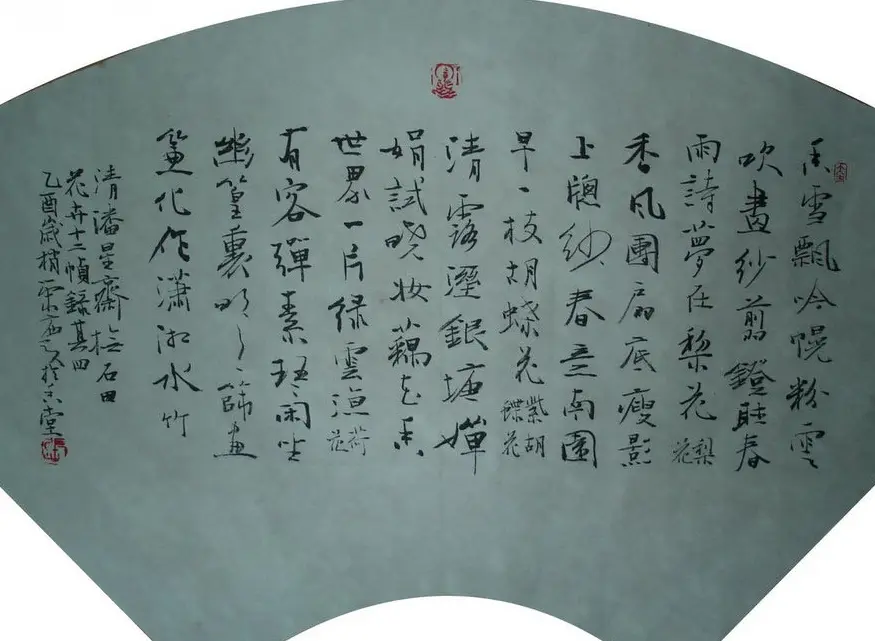 香雪飄吟幌粉雲
吹畫紗翦鐙聽春
雨詩夢在棃花 梨花
香風團扇底瘦影
上牕紗春意南園
早一枝胡蝶花 紫胡蝶花
清露溼銀塘嬋
娟試曉妝藕花香
世界一片綠雲涼 荷花
有客彈素琴閑坐
幽篁裏明月篩畫
簾化作瀟湘水 竹
清潘星齋撫石田
花卉十二幀錄其四
乙酉歲梢於堂